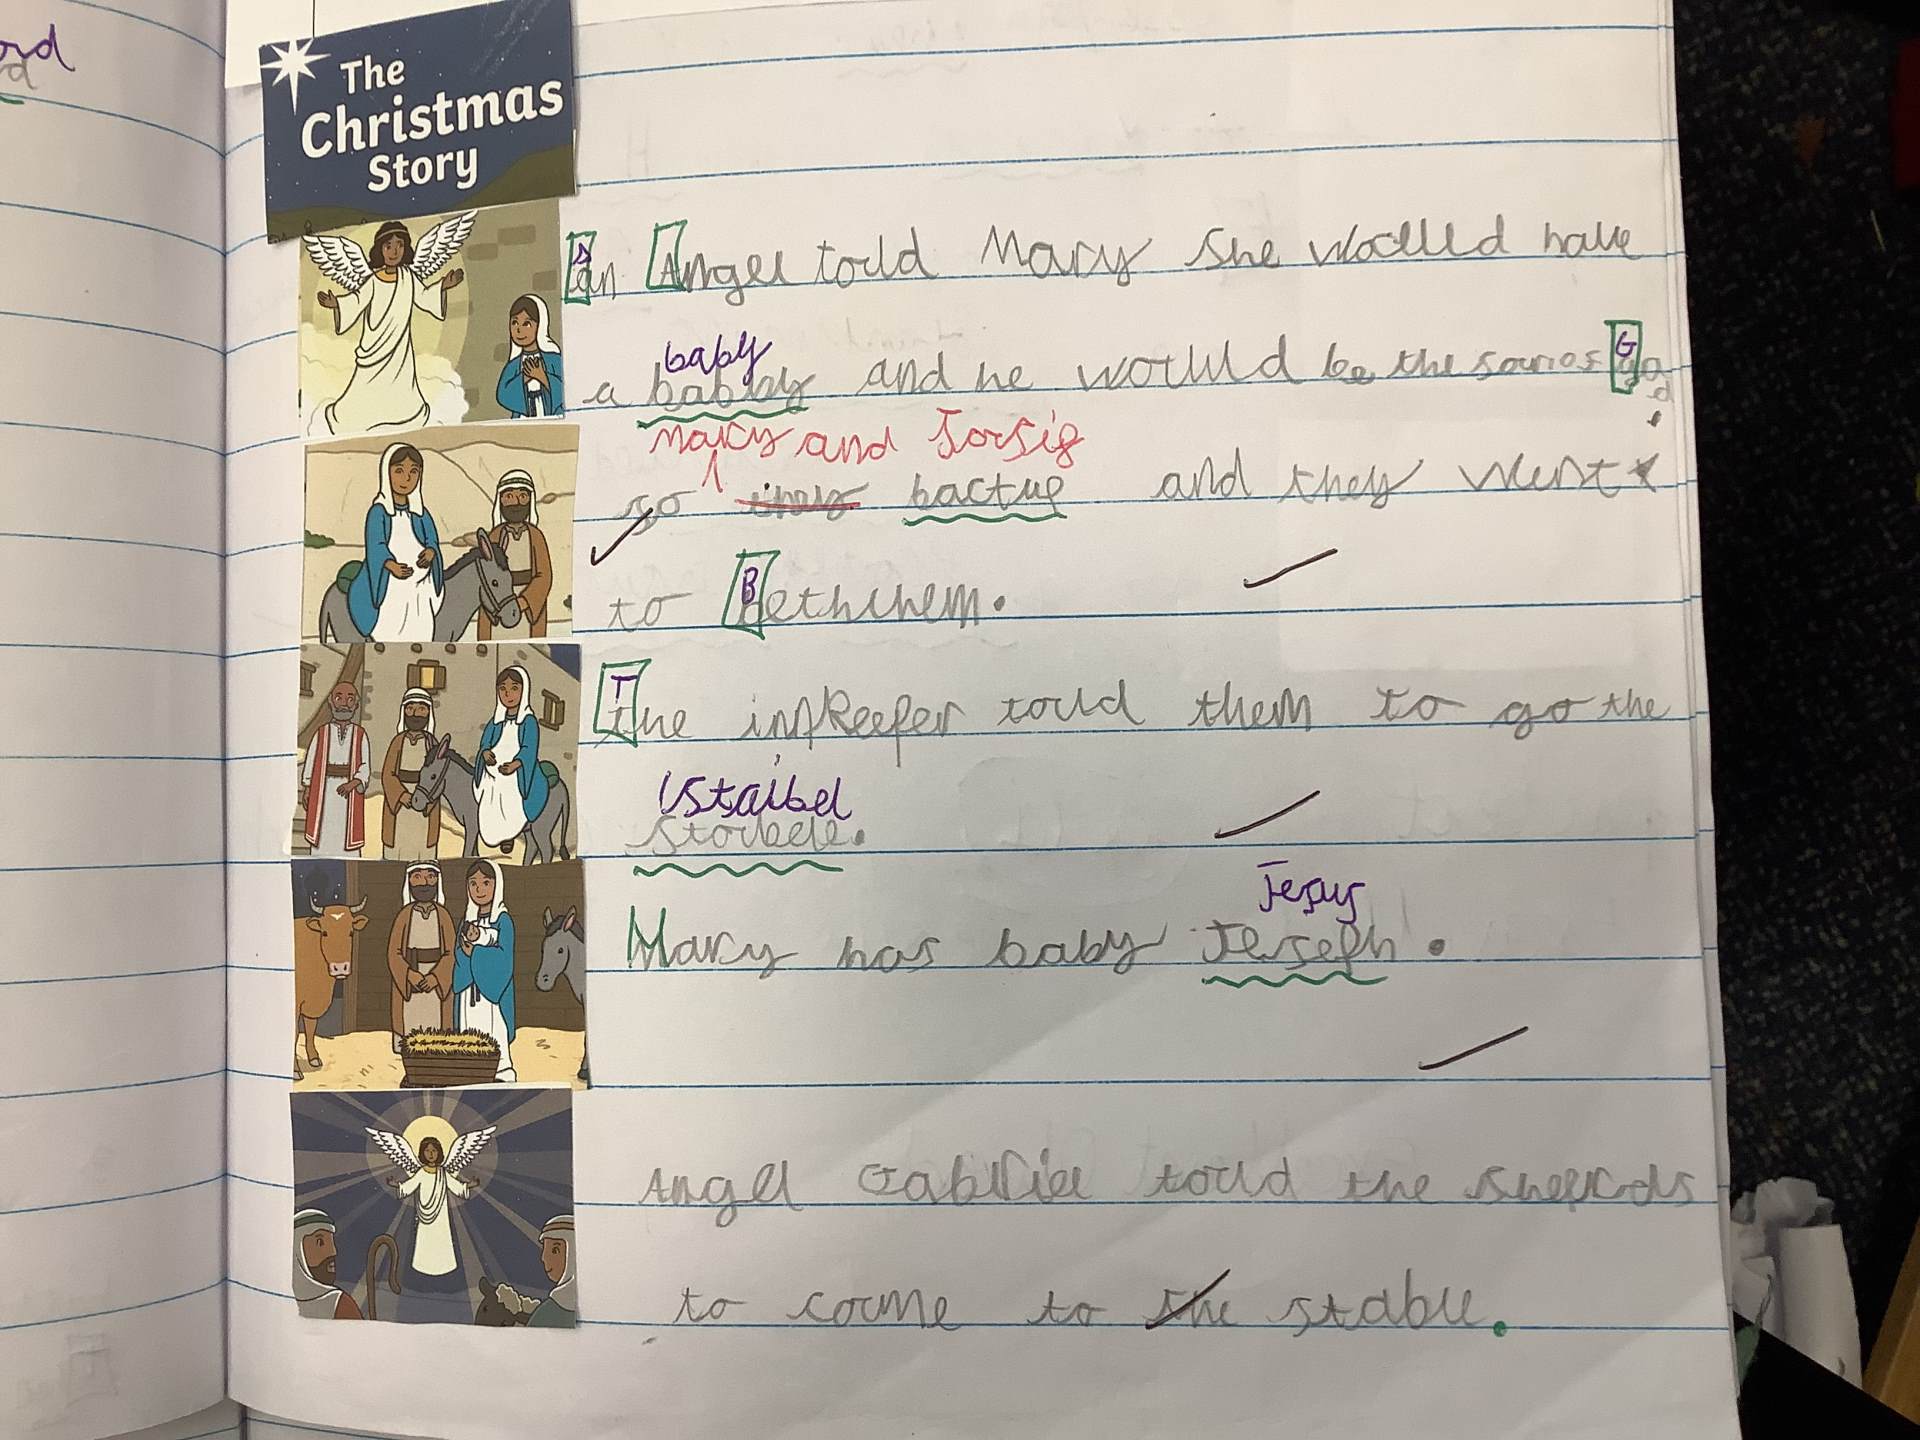 ord
d
The
Christmas
Story
A
an Angel tould Mary She woulld have
baby
G
a babby and he would be the sarios god.
mary and Jorsig
so they bactup and they went
B
to bethlhem.
T
the inkeeper tould them to go the
staibel
stoubele.
Jesus
Mary has baby Jerseph.
Angel Gabriel tould the sheperds
to coume to the stable.